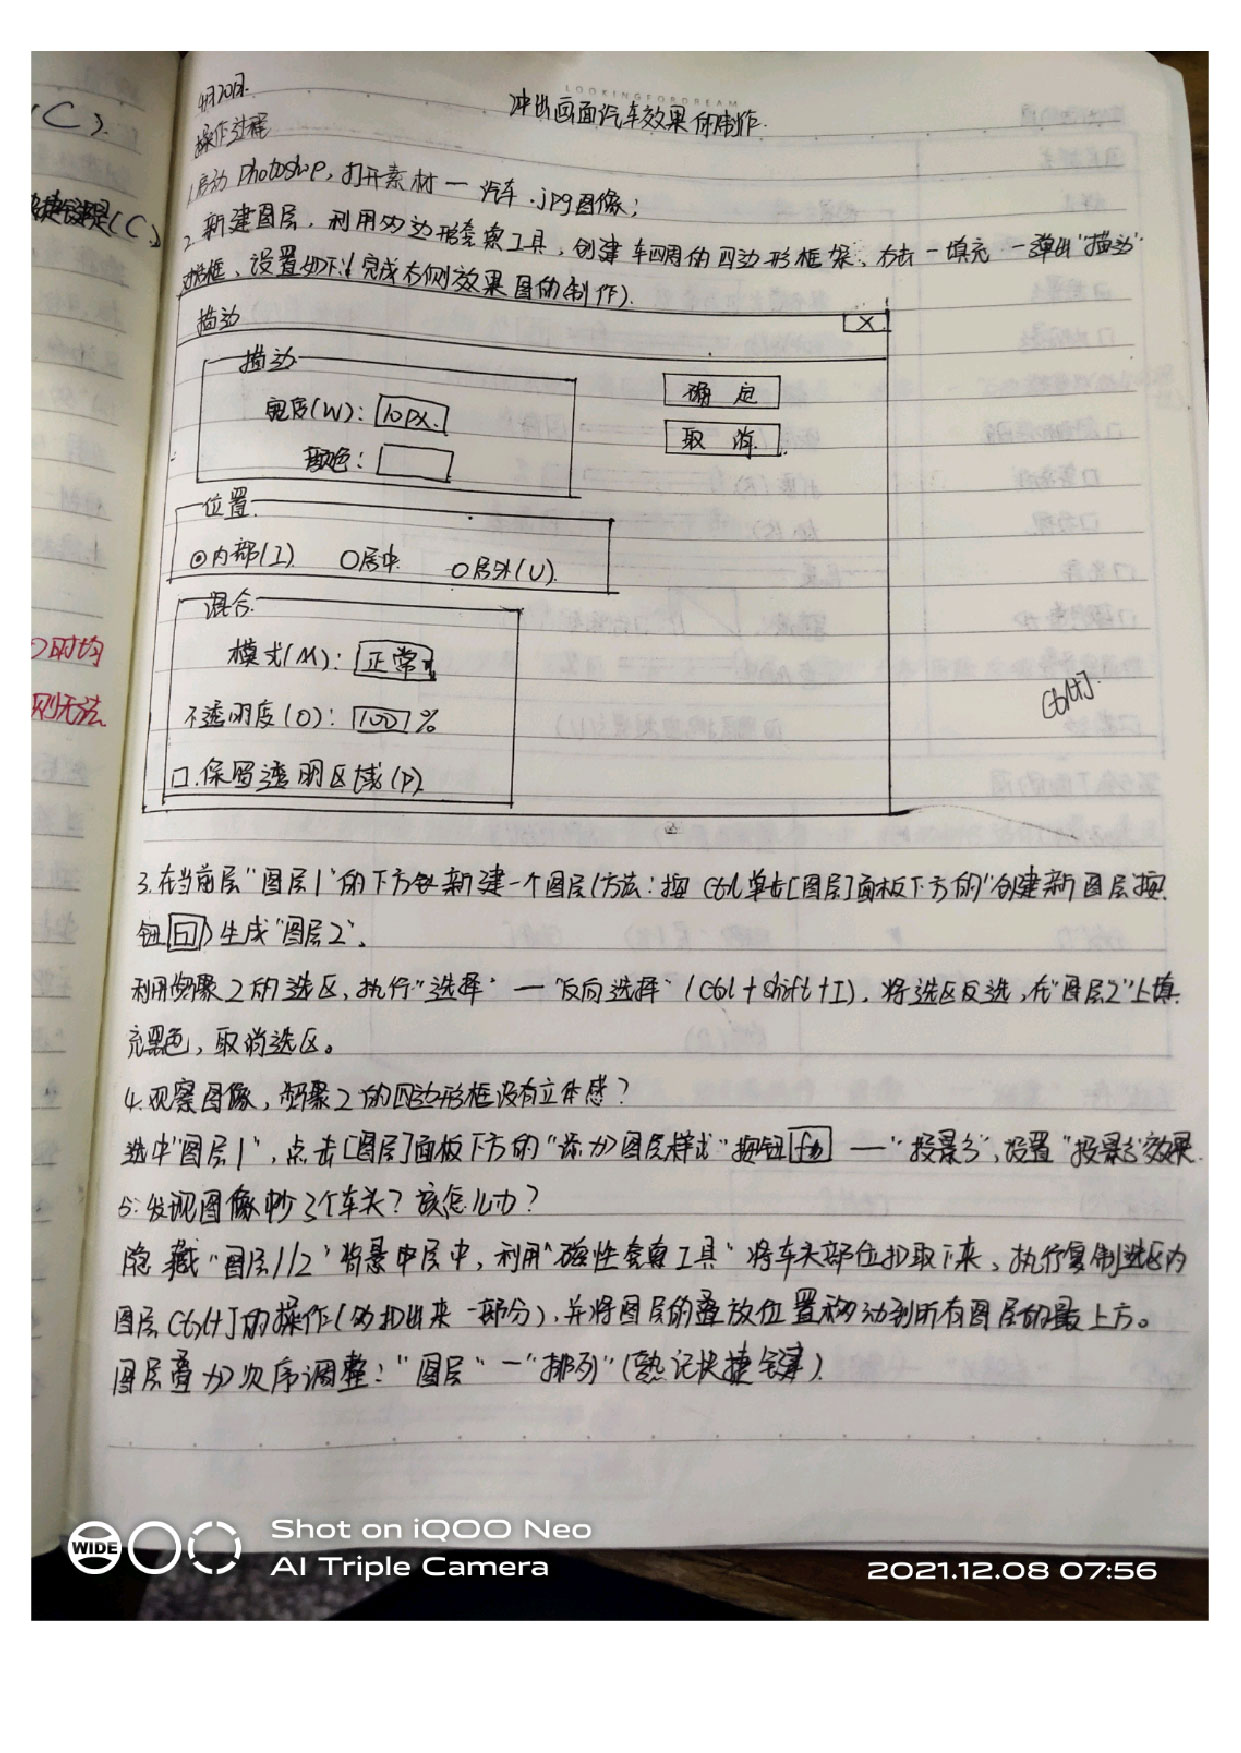 LOOKINGFORDREAM
4月20日.
冲出画面汽车效果的制作.
操作过程
1.启动Photoshop,打开素材一汽车.jpg图像;
2.新建图层,利用多边形套索工具,创建车四周的四边形框架,右击一填充一弹出"描边"
对话框,设置如下:(完成右侧效果图的制作).
描边 X
描边
宽度(W): 10px. 确定
颜色: 取消
位置
内部(I) 居中 居外(U)
混合
模式(M): 正常
不透明度(O): 100 %
保留透明区域(P)
Ctrl+J.
3.在当前层"图层1"的下方新建一个图层(方法:按Ctrl单击[图层]面板下方的"创建新图层"按
钮)生成"图层2".
利用步骤2的选区,执行"选择"一"反向选择"(Ctrl+Shift+I),将选区反选,在"图层2"上填
充黑色,取消选区。
4.观察图像,步骤2的四边形框没有立体感?
选中"图层1",点击[图层]面板下方的"添加图层样式"按钮fx一"投影",设置"投影"效果.
5.发现图像中少了个车头?该怎么办?
隐藏"图层1/2"背景中层中,利用"磁性套索工具"将车头部位抠取下来,执行复制选区为
图层Ctrl+J的操作(多扣出来一部分),并将图层的叠放位置移动到所有图层的最上方。
图层叠加次序调整:"图层"一"排列"(熟记快捷键).
(C).
快捷键是(C)
时均
则无法
WIDE
Shot on iQOO Neo
AI Triple Camera
2021.12.08 07:56